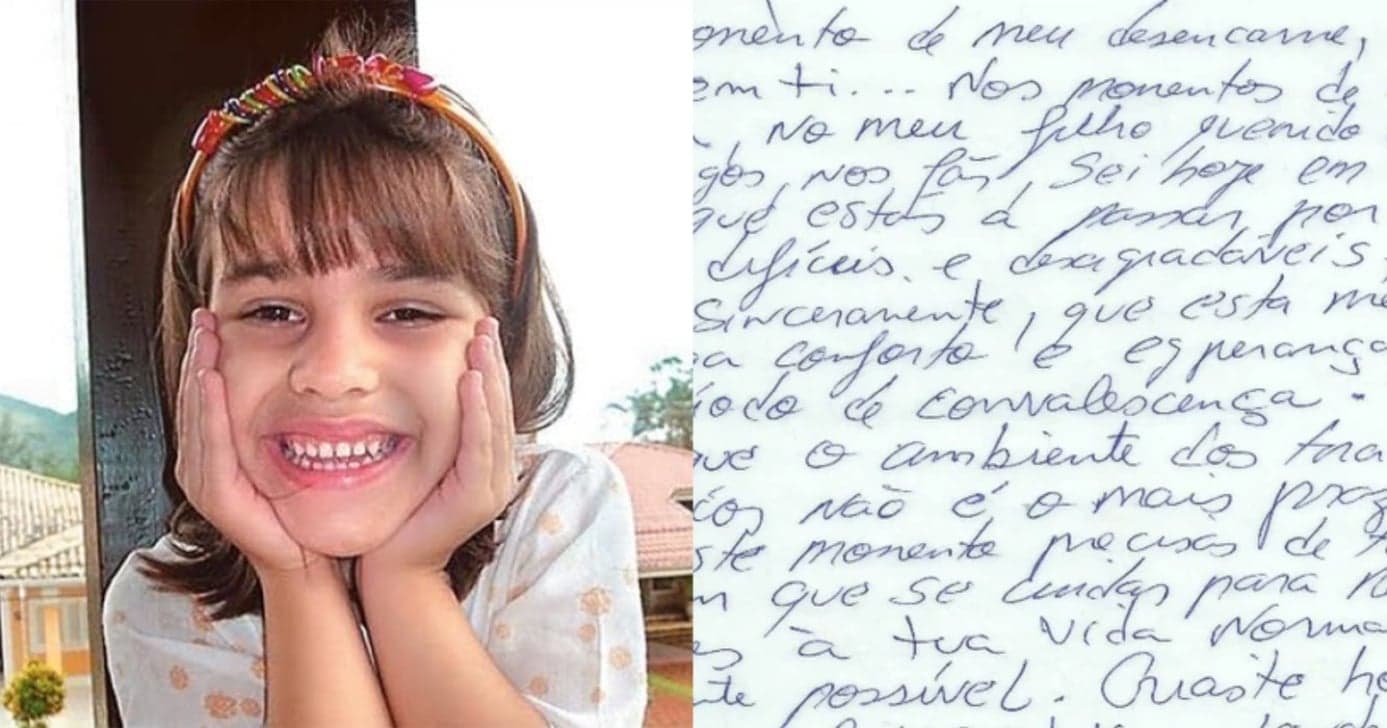 omento de meu desencarne,
em ti... Nos momentos de
, No meu filho querido
gos, nos fãs, Sei hoje em
que estás a passar por
difíceis e desagradáveis,
sinceramente, que esta me
a conforto e esperança
íodo de convalescença.
ue o ambiente dos
cos não é o mais praz
ste momento precisas de
m que se cuidas para
es à tua vida Norma
te possível.